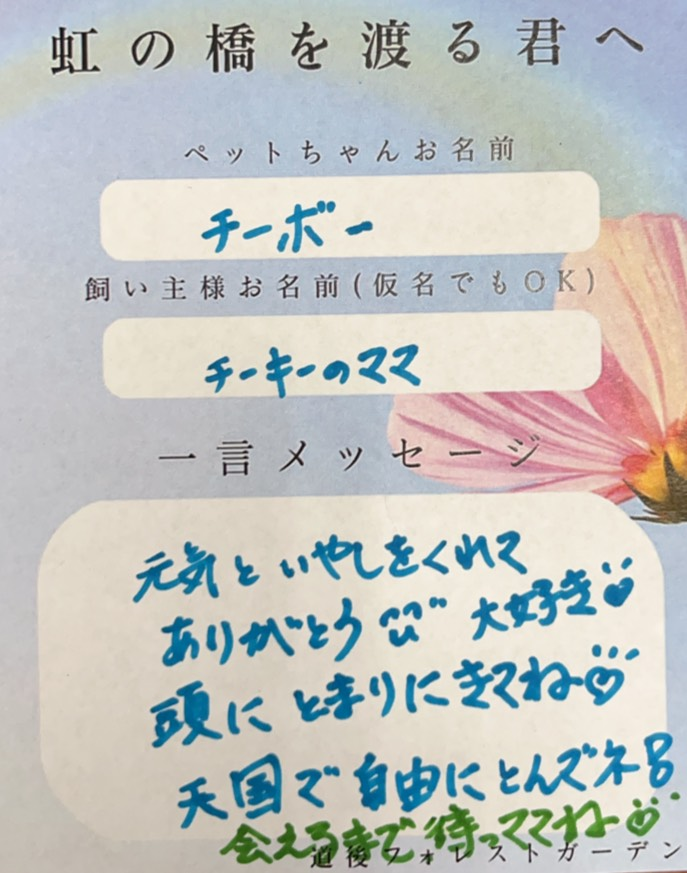 虹の橋を渡る君へ
ペットちゃんお名前
チーボー
飼い主様お名前(仮名でもOK)
チーキーのママ
一言メッセージ
元気といやしをくれて
ありがとう 大好き
頭にとまりにきてね
天国で自由にとんズネ
会えるまで待っててね
道後フォレストガーデン